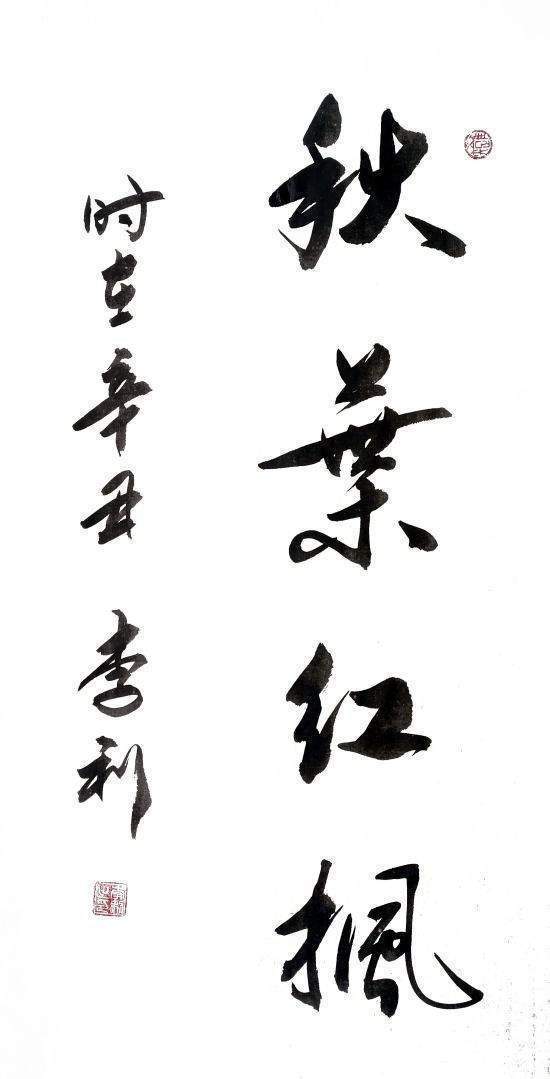 秋葉红楓
时在辛丑 李利